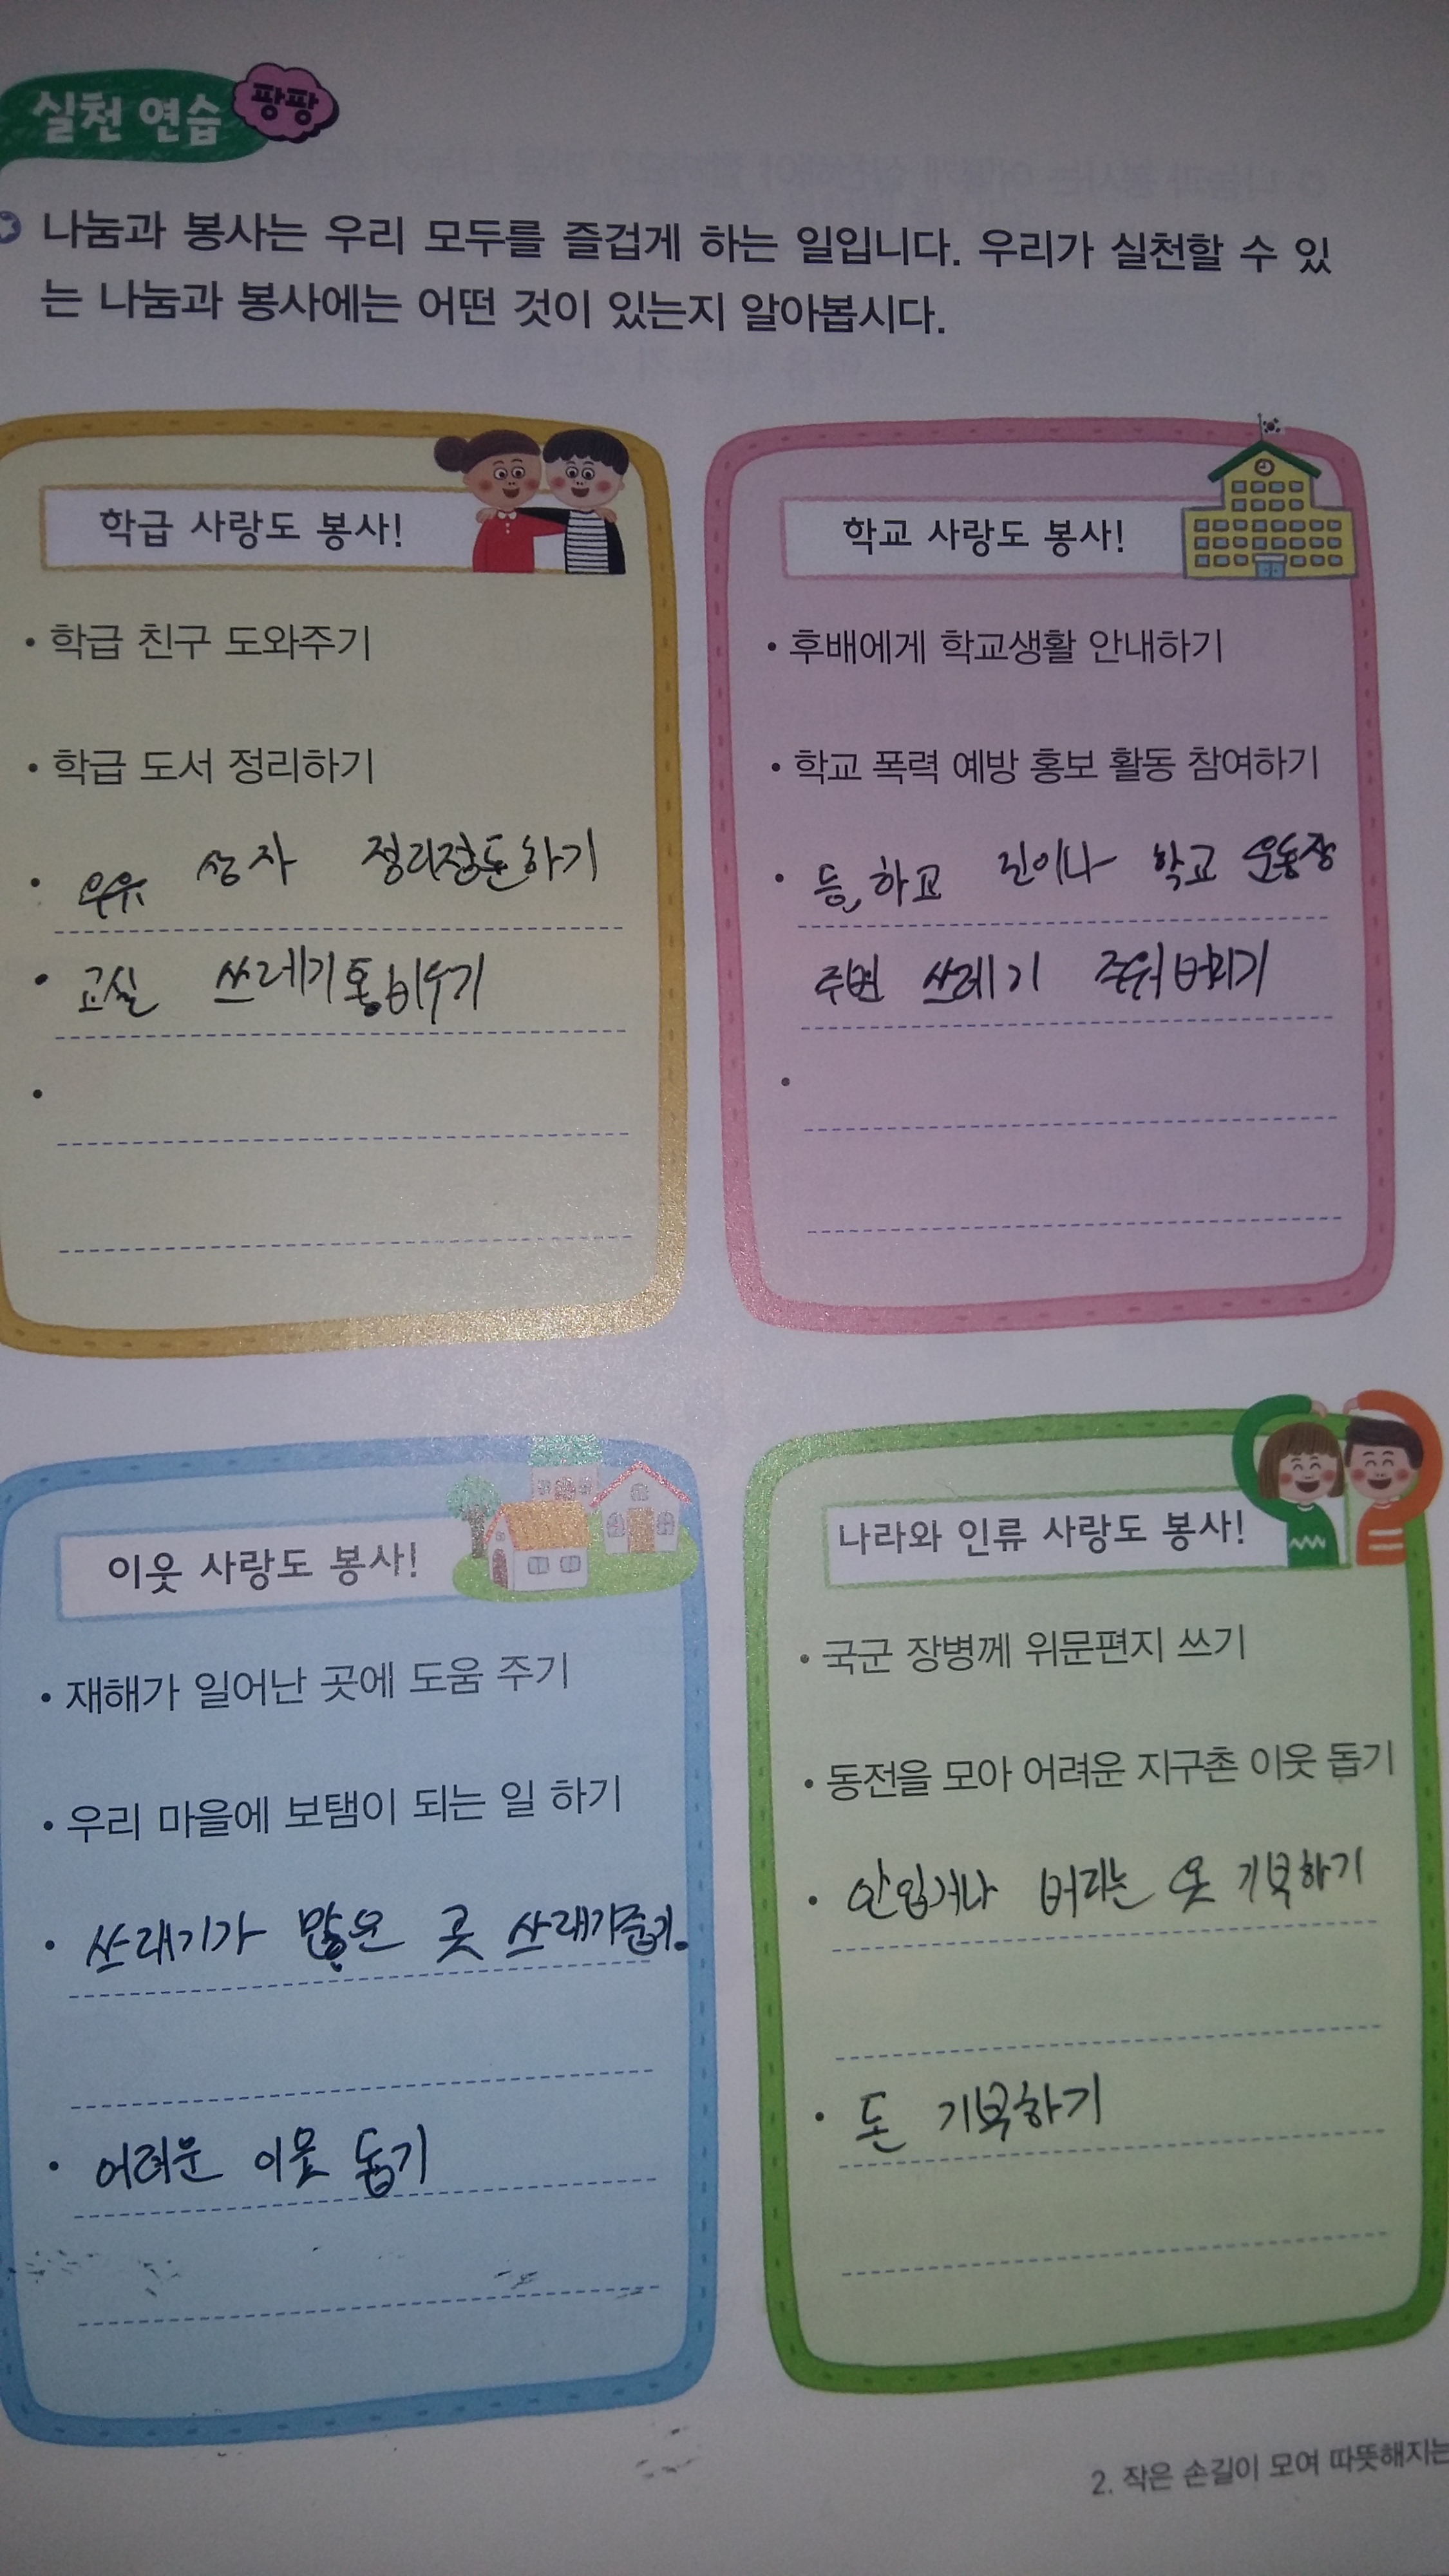 실천 연습 팡팡
나눔과 봉사는 우리 모두를 즐겁게 하는 일입니다. 우리가 실천할 수 있
는 나눔과 봉사에는 어떤 것이 있는지 알아봅시다.
학급 사랑도 봉사!
• 학급 친구 도와주기
• 학급 도서 정리하기
• 우유 상자 정리정돈하기
• 교실 쓰레기통비우기
•
학교 사랑도 봉사!
• 후배에게 학교생활 안내하기
• 학교 폭력 예방 홍보 활동 참여하기
• 등,하교 길이나 학교 운동장
주변 쓰레기 주워버리기
•
이웃 사랑도 봉사!
• 재해가 일어난 곳에 도움 주기
• 우리 마을에 보탬이 되는 일 하기
• 쓰래기가 많은 곳 쓰래기줍기.
• 어려운 이웃 돕기
나라와 인류 사랑도 봉사!
• 국군 장병께 위문편지 쓰기
• 동전을 모아 어려운 지구촌 이웃 돕기
• 안입거나 버리는 옷 기부하기
• 돈 기부하기
2. 작은 손길이 모여 따뜻해지는